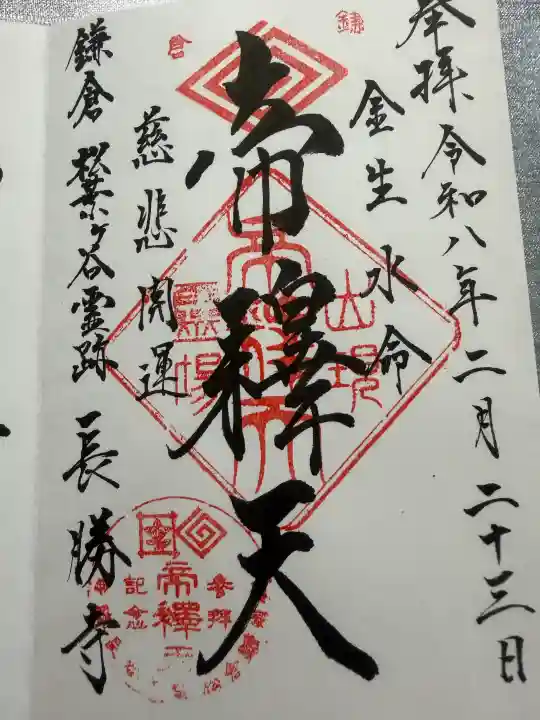 奉拝 令和八年二月二十三日
金生水命
帝釋天
慈悲開運
鎌倉 松葉ヶ谷霊跡 長勝寺
鎌
倉
出現
霊場
帝釋天
参拝
記念